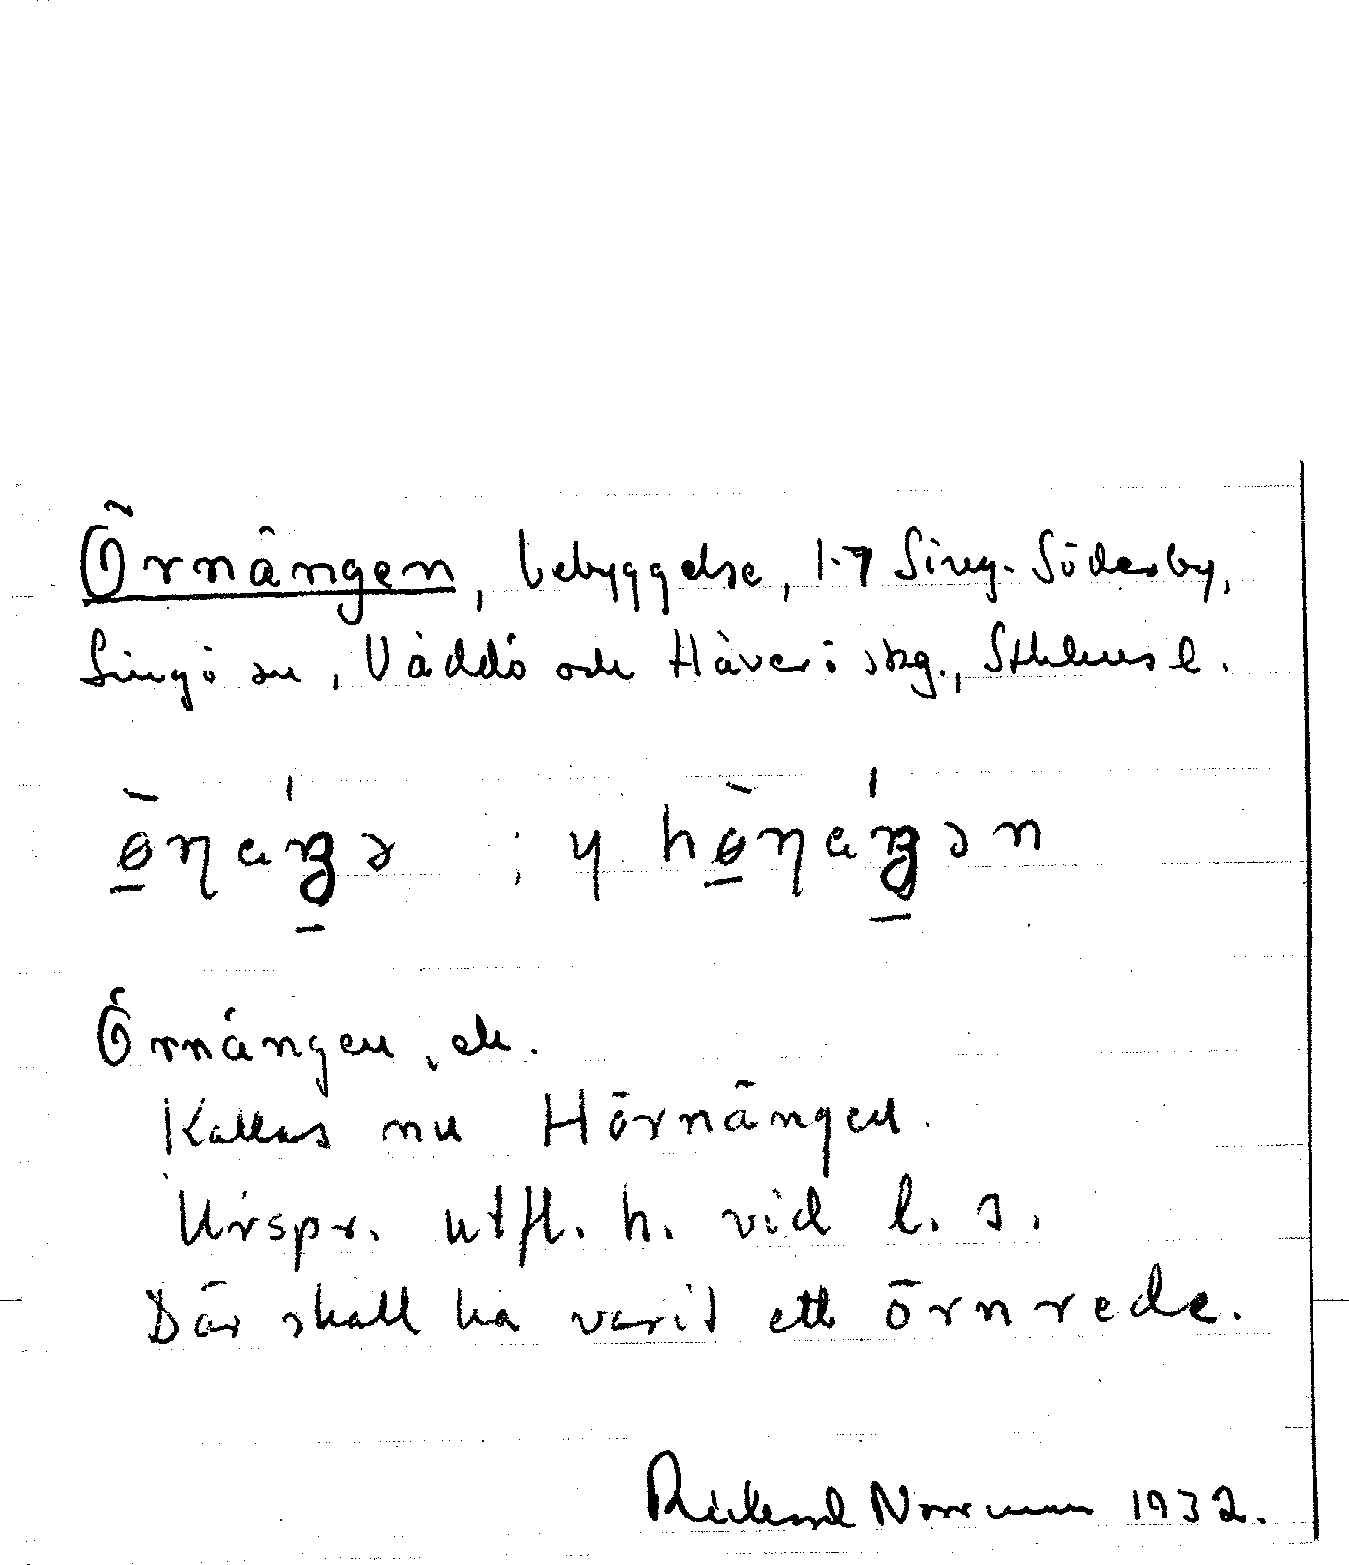 Örnängen, bebyggelse, 1-7 Sing-Söderby,
Singö sn, Väddö och Häverö skg., Sthlms l.
Örnängen, ek.
Kallas nu Hörnängen.
Urspr. utfl. h. vid l. s.
Där skall ha varit ett örnrede.
Rickard Norrman 1932.